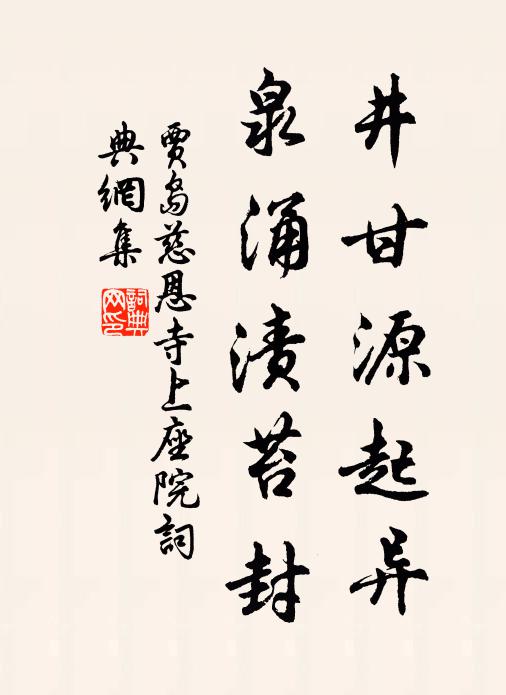 井甘源起异
泉涌渍苔封
贾岛慈恩寺上座院词
典網集
詞典
网印